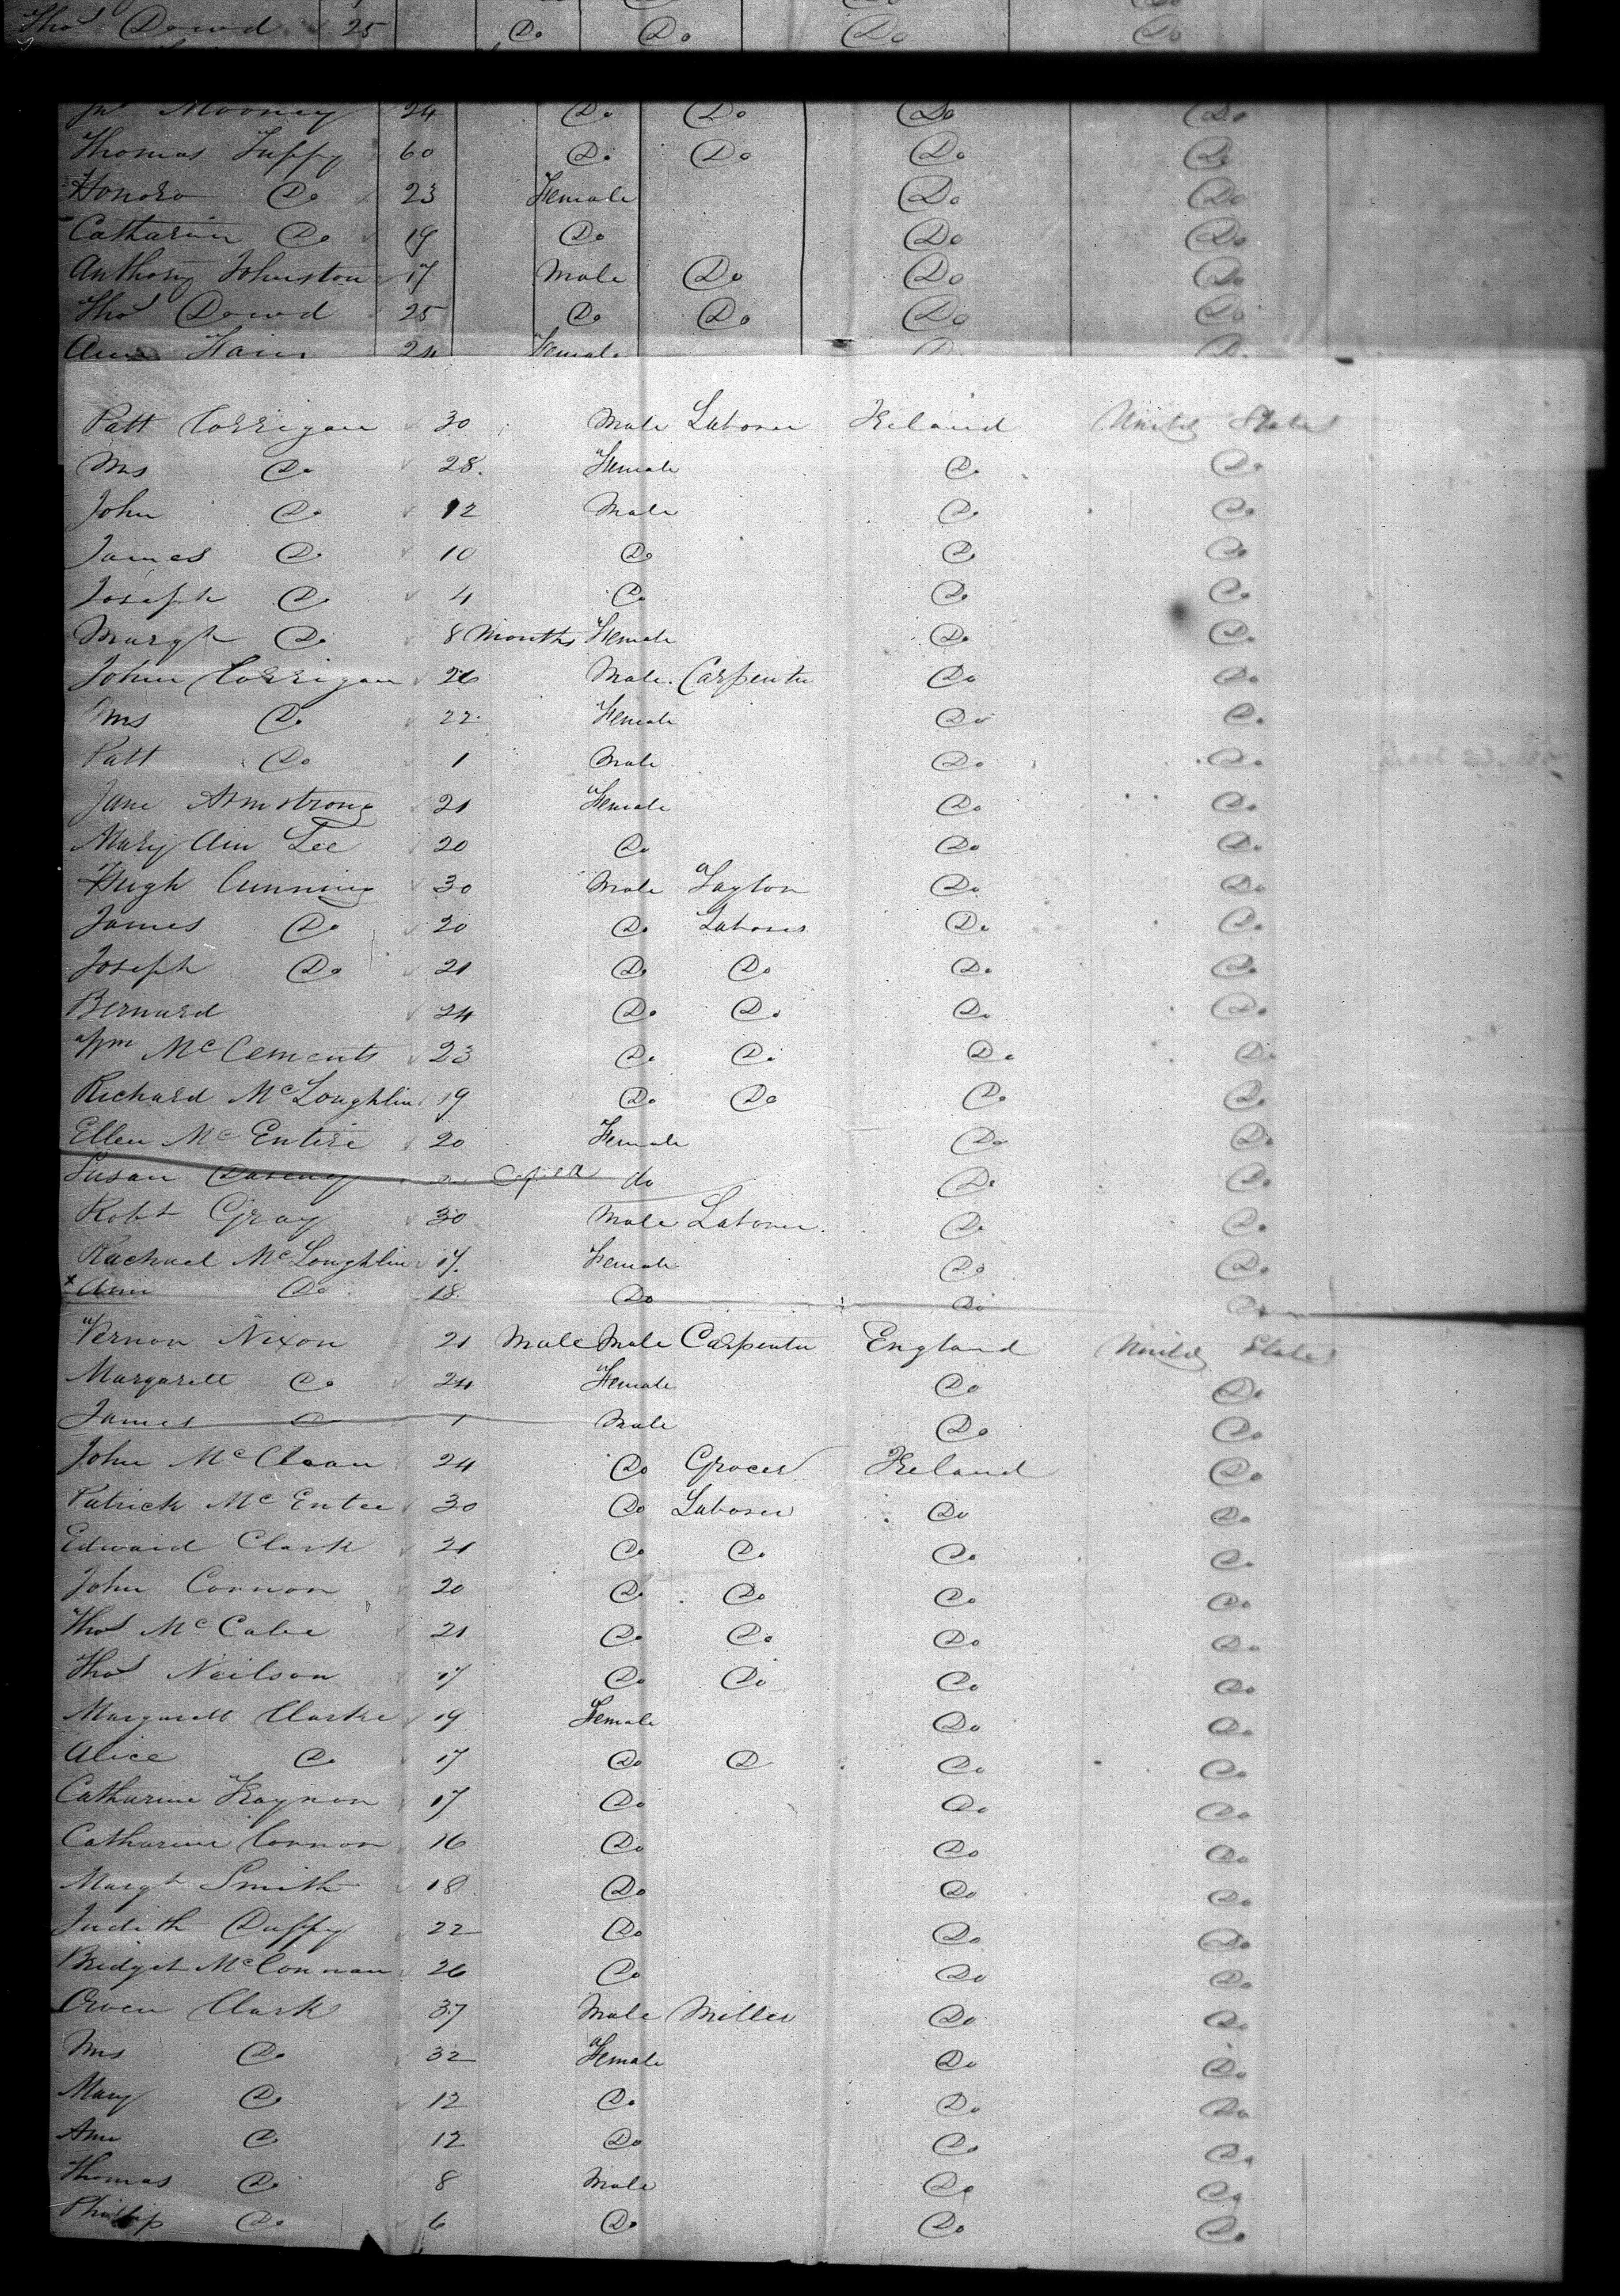 Thos Dowd 25 Do Do Do Do
Jno Mooney 24 Do Do Do Do
Thomas Tuffy 60 Do Do Do Do
Honora Do 23 Female Do Do
Catharin Do 19 Do Do Do
Anthony Johnston 17 Male Do Do Do
Thos Dowd 25 Do Do Do Do
Ann 24 Female Do Do
Patt Corrigan 30 Male Laborer Ireland United States
Mrs Do 28 Female Do Do
John Do 12 Male Do Do
James Do 10 Do Do Do
Joseph Do 4 Do Do Do
Margt Do 8 Months Female Do Do
John Corrigan 26 Male Carpenter Do Do
Mrs Do 22 Female Do Do
Patt Do 1 Male Do Do
Jane Armstrong 21 Female Do Do
Mary Ann Lee 20 Do Do Do
Hugh Cunning 30 Male Taylor Do Do
James Do 20 Do Laborer Do Do
Joseph Do 21 Do Do Do Do
Bernard 24 Do Do Do Do
Wm McClements 23 Do Do Do Do
Richard McLoughlin 19 Do Do Do Do
Ellen McEntire 20 Female Do Do
Susan do Do Do
Robt Gray 30 Male Laborer Do Do
Rachael McLoughlin 17 Female Do Do
x Ann Do 18 Do Do Do
Vernon Nixon 21 Male Male Carpenter England United States
Margarett Do 24 Female Do Do
James Do 1 Male Do Do
John McClean 24 Do Grocer Ireland Do
Patrick McEntee 30 Do Laborer Do Do
Edward Clark 21 Do Do Do Do
John Connon 20 Do Do Do Do
Thos McCabe 21 Do Do Do Do
Thos Neilson 17 Do Do Do Do
Margarett Clarke 19 Female Do Do
Alice Do 17 Do D Do Do
Catharine Traynon 17 Do Do Do
Catharine Connon 16 Do Do Do
Margt Smith 18 Do Do Do
Judith Duffy 22 Do Do Do
Bridget McConnan 26 Do Do Do
Owen Clark 37 Male Miller Do Do
Mrs Do 32 Female Do Do
Mary Do 12 Do Do Do
Ann Do 12 Do Do Do
Thomas Do 8 Male Do Do
Phillip Do 6 Do Do Do